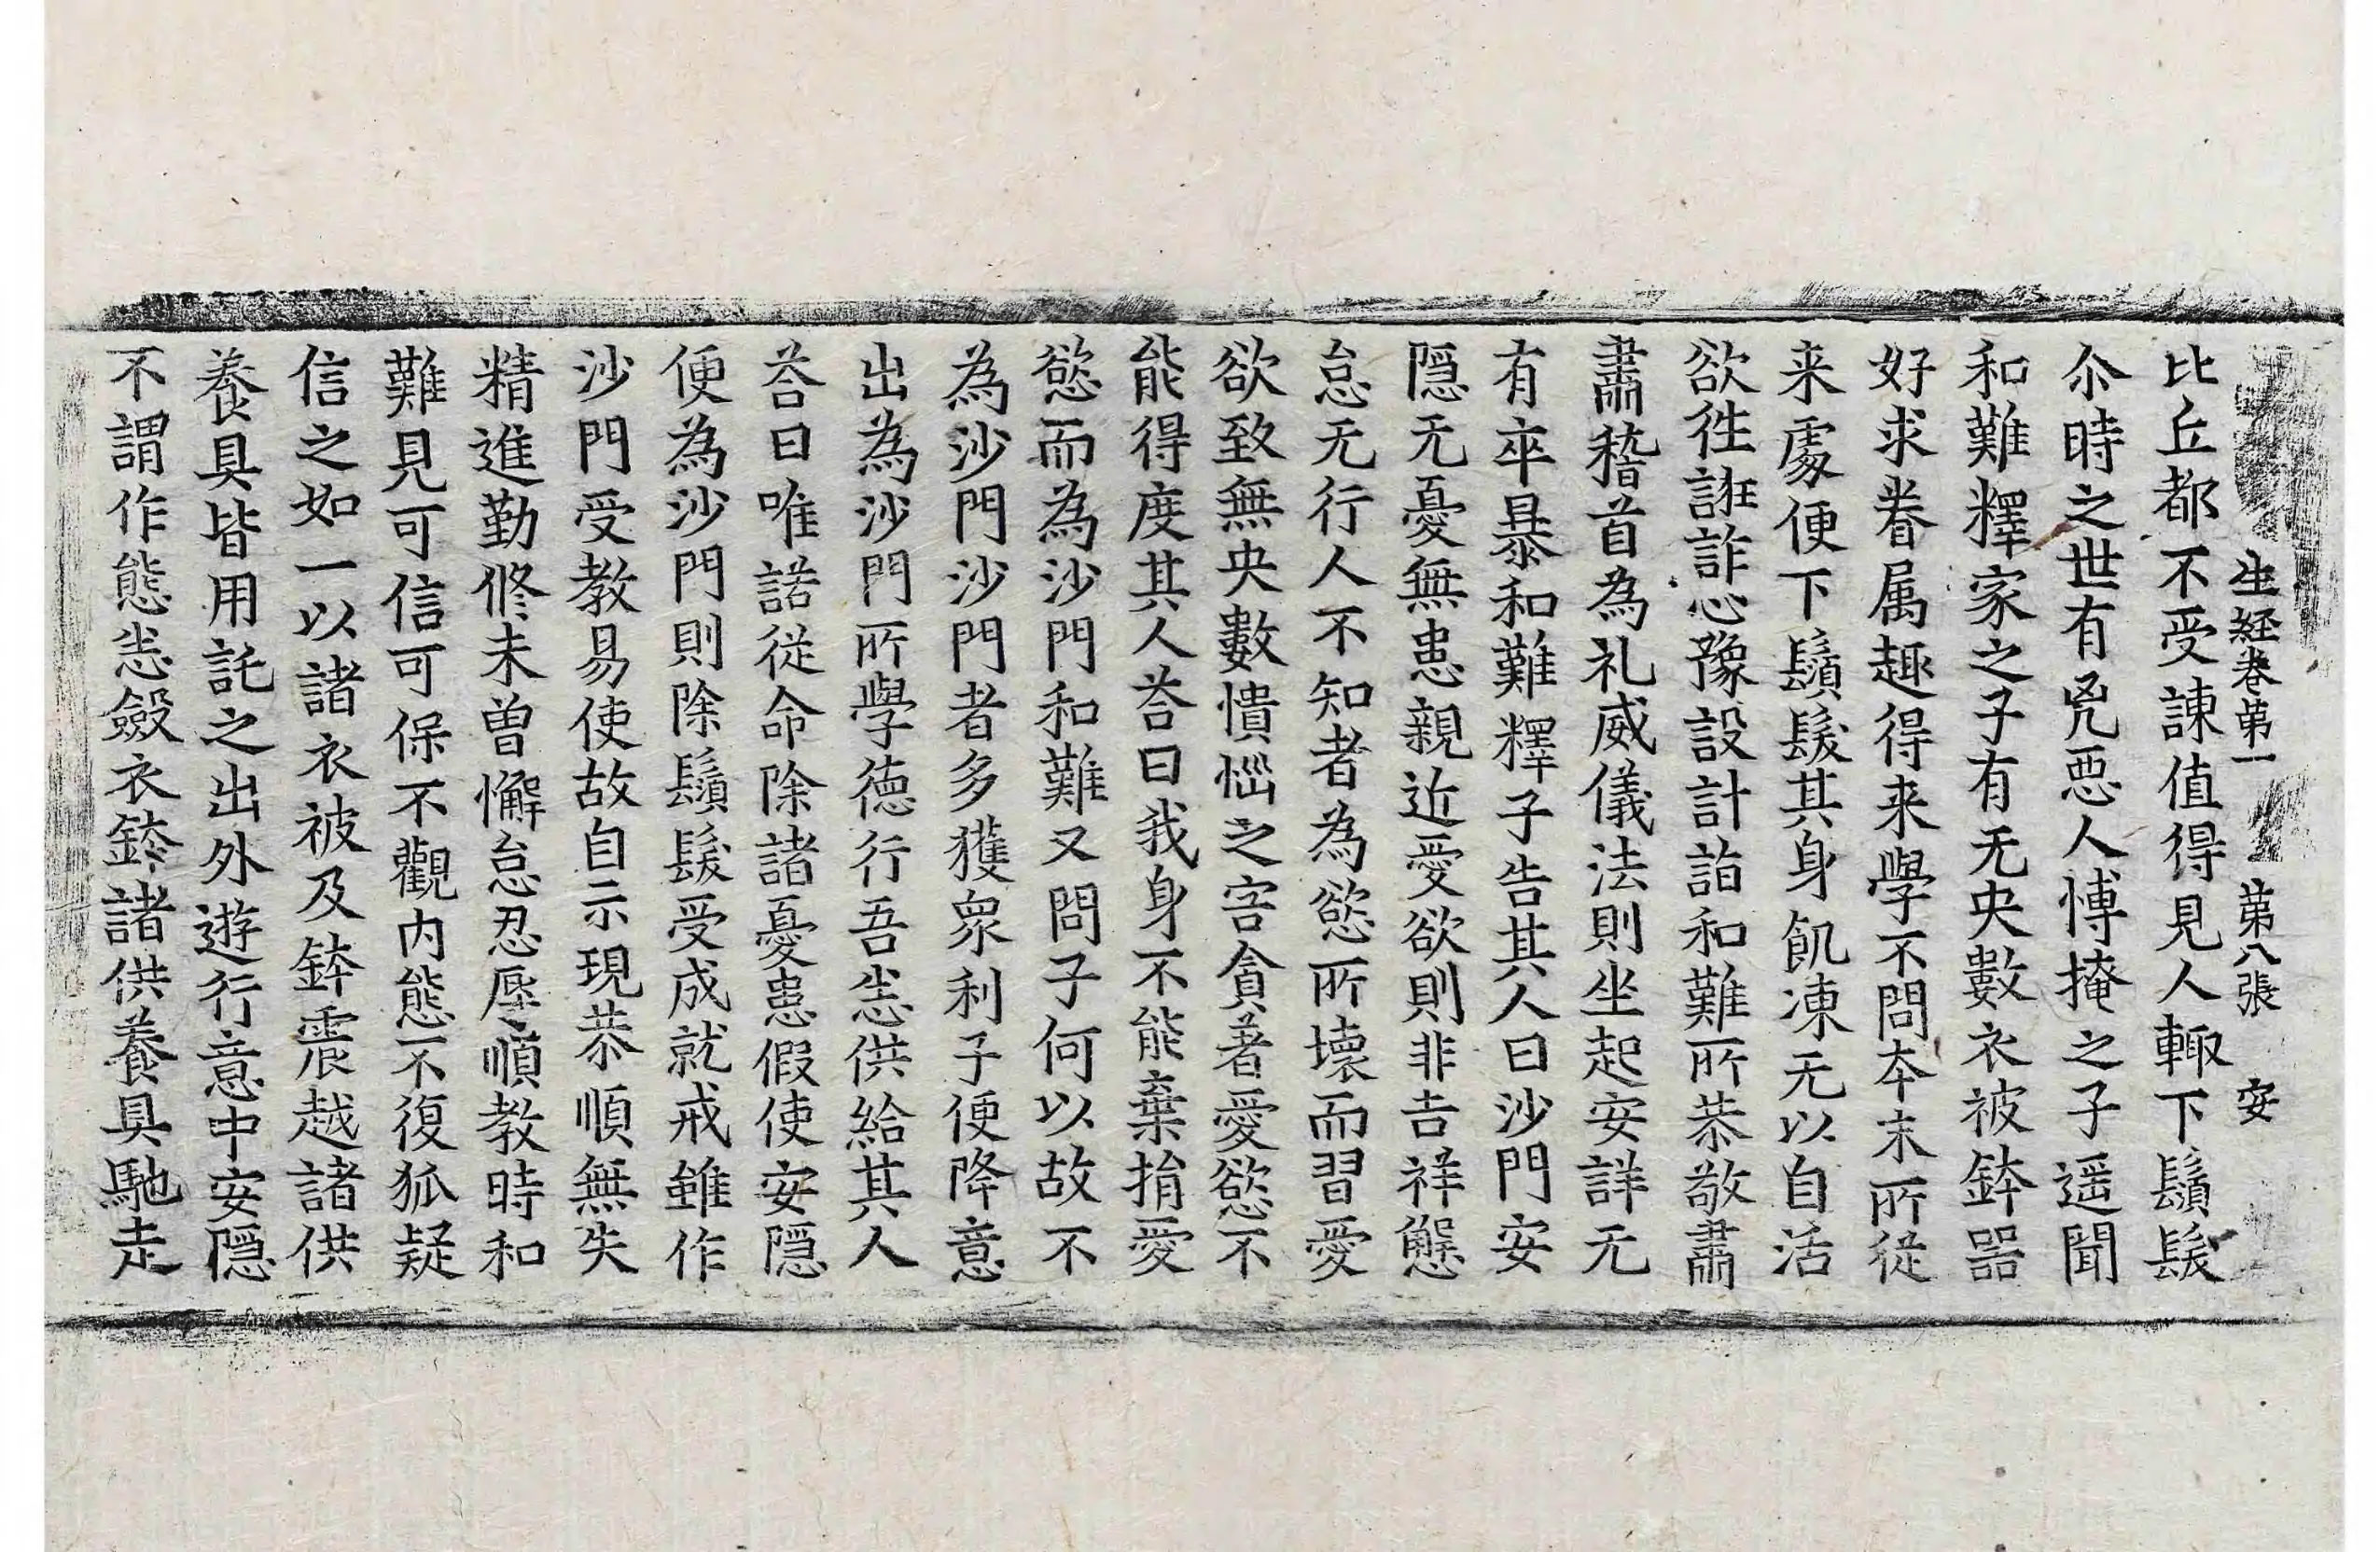 生経巻第一 第八張 安
比丘都不受諫值得見人輙下鬚髮
尒時之世有兇惡人愽掩之子遥聞
和難釋家之子有无央數衣被鉢器
好求眷属趣得来學不問夲末所從
来處便下鬚髮其身飢凍无以自活
欲徃誑詐心豫設計詣和難所恭敬肅
肅稽首為礼威儀法則坐起安詳无
有卒暴和難釋子告其人曰沙門安
隱无憂無患親近愛欲則非吉祥懈
怠无行人不知者為慾所壞而習愛
欲致無央數憒惱之害貪著愛慾不
能得度其人荅曰我身不能棄捐愛
慾而為沙門和難又問子何以故不
為沙門沙門者多獲衆利子便降意
出為沙門所學徳行吾悉供給其人
荅曰唯諾從命除諸憂患假使安隱
便為沙門則除鬚髮受成就戒雖作
沙門受教易使故自示現恭順無失
精進勤修未曾懈怠忍辱順教時和
難見可信可保不觀内態不復狐疑
信之如一以諸衣被及鉢震越諸供
養具皆用託之出外遊行意中安隱
不謂作態悉斂衣鉢諸供養具馳走